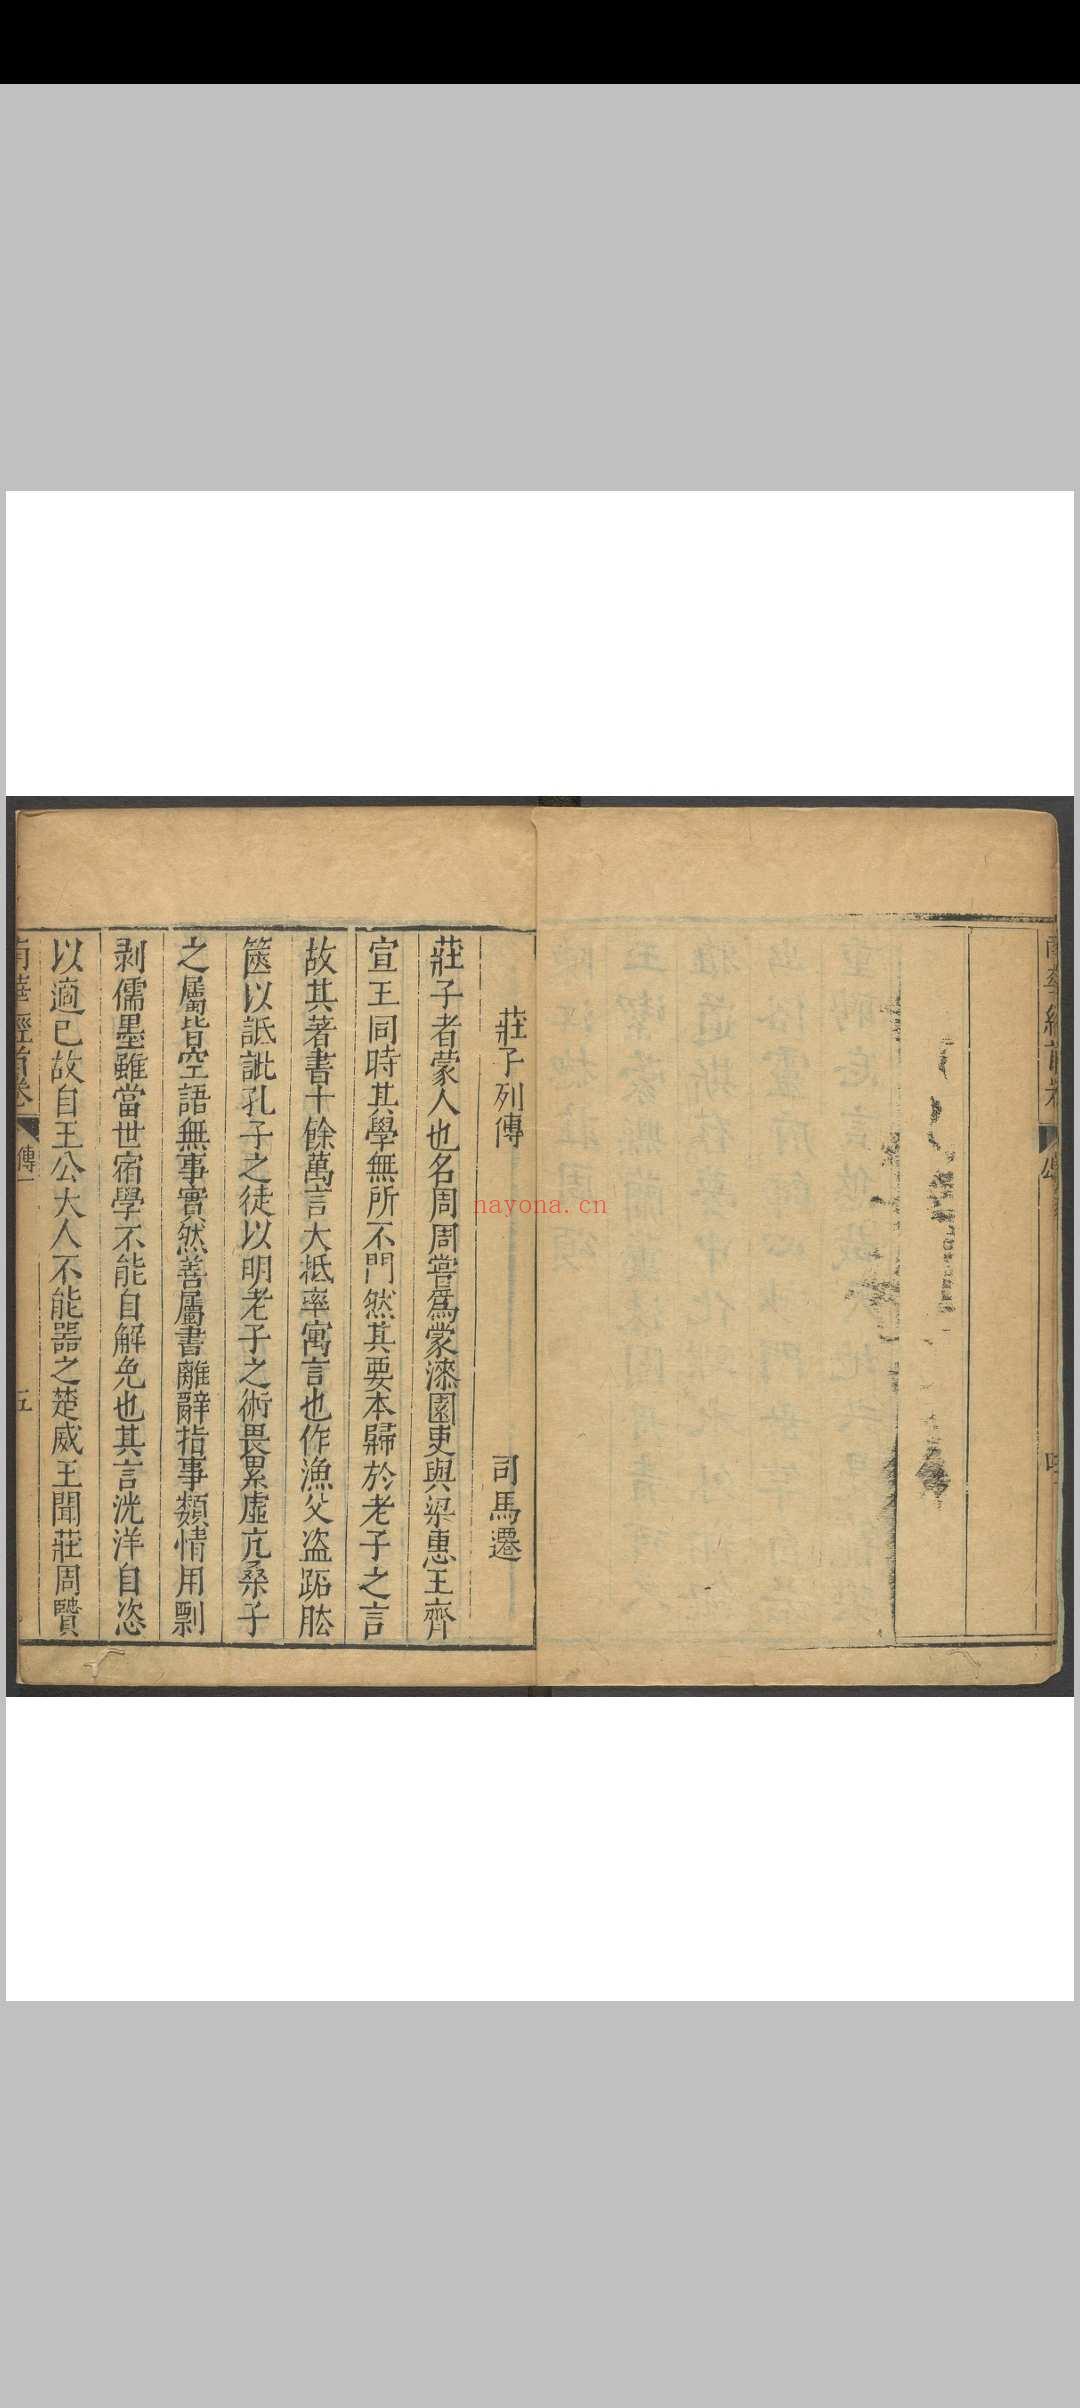 莊子列傳
司馬遷
莊子者蒙人也名周周嘗爲蒙漆園吏與梁惠王齊
宣王同時其學無所不門然其要本歸於老子之言
故其著書十餘萬言大柢率寓言也作漁父盗跖胠
篋以詆訿孔子之徒以明老子之術畏累虛亢桑子
之屬皆空語無事實然善屬書離辭指事類情用剽
剥儒墨雖當世宿學不能自解免也其言洸洋自恣
以適已故自王公大人不能噐之楚威王聞莊周賢
南華經首卷
傳一
五
nayona.cn